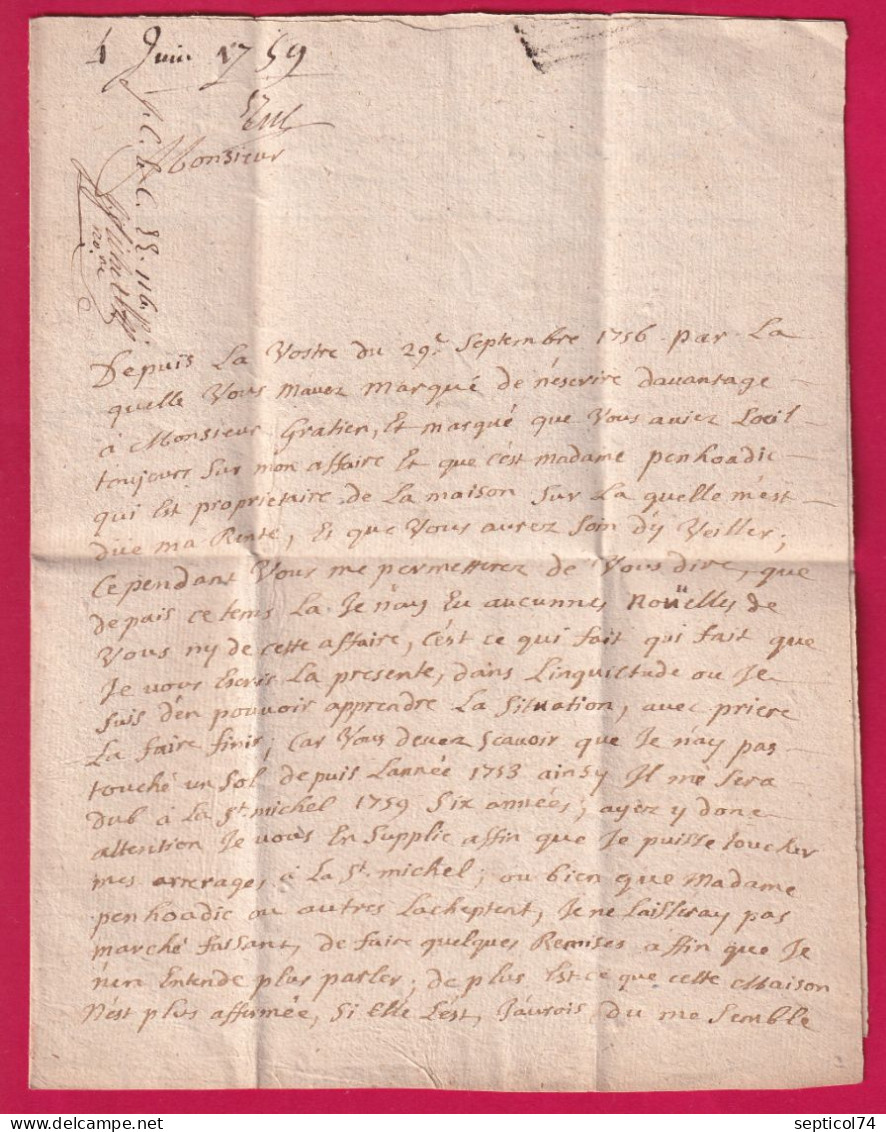 4 Juin 1759
Monsieur
Depuis La Vostre du 29e. Septembre 1756 par La
quelle Vous m'avez marqué de n'escrire davantage
à Monsieur Gratien, Et marqué que Vous aviez L'oeil
toujours Sur mon affaire Et que c'est madame penhoadic
qui Est propriétaire de La maison Sur La quelle m'est
düe ma Rente, Et que Vous aurez Soin d'y Veiller;
Cependant Vous me permetterez de Vous dire, que
depuis ce tems La Je n'ay Eu aucunnes Noüelles de
Vous ny de cette affaire, c'est ce qui fait qui fait que
Je vous Escris La presente, dans L'inquietude ou Je
suis d'en pouvoir apprendre La Situation, avec priere
La faire finir; Car Vous devez scavoir que Je n'ay pas
touché un Sol depuis L'année 1753 ainsy Il me Sera
dub à La St. michel 1759 Six années; ayez y donc
attention Je vous En Supplie affin que Je puisse toucher
mes arrerages à La St. michel; ou bien que Madame
penhoadic ou autres L'acheptent, Je ne Laisseray pas
marché faisant, de faire quelques Remises affin que Je
n'en Entende plus parler; de plus Est ce que cette Maison
N'est plus affermée, Si Elle L'est, J'aurois du me Semble
septicol74